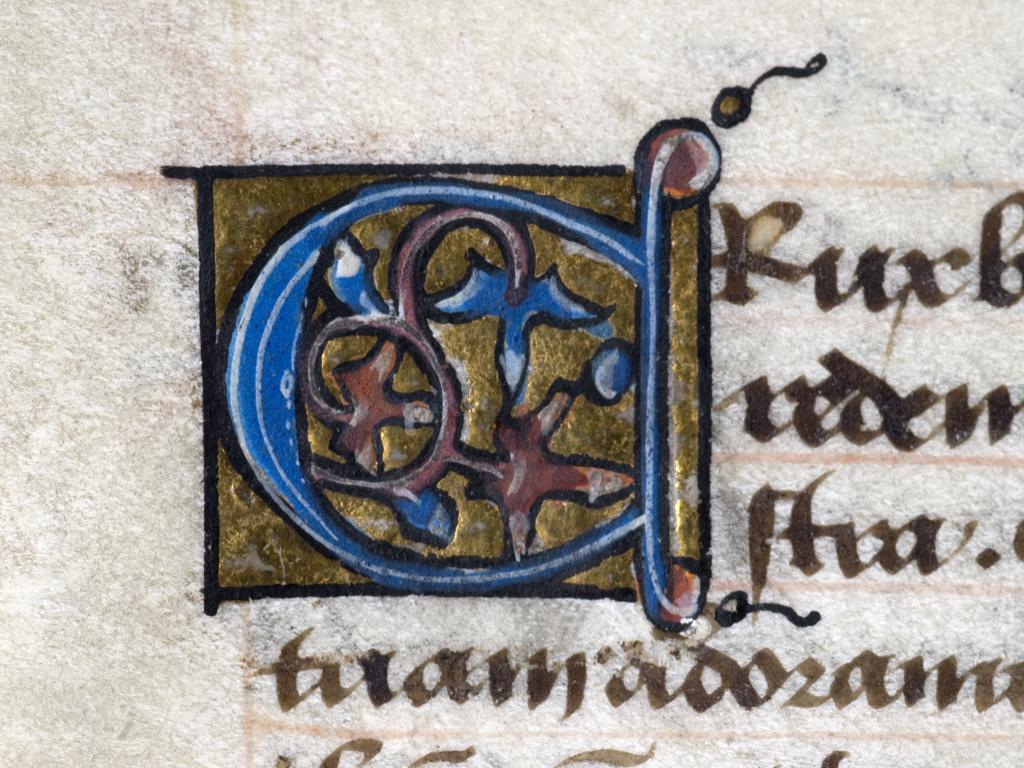 CRuxb
redem
stra.
tuam adoram